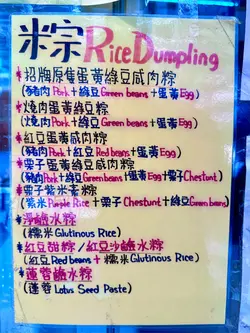 米粽 Rice Dumpling
*招牌原隻蛋黃綠豆咸肉粽
(豬肉Pork+綠豆Green beans+蛋黃Egg)
*燒肉蛋黃綠豆粽
(燒肉Pork+綠豆Green beans+蛋黃Egg)
*紅豆蛋黃咸肉粽
(豬肉Pork+紅豆Red beans+蛋黃Egg)
*栗子蛋黃綠豆咸肉粽
(豬肉Pork+綠豆Green beans+蛋黃Egg+栗子Chestunt)
*栗子紫米素粽
(紫米Purple Rice+栗子Chestunt+綠豆Green beans)
*淨鹼水粽
(糯米Glutinous Rice)
*紅豆甜粽/紅豆沙鹼水粽
(紅豆Red beans+糯米Glutinous Rice)
*蓮蓉鹼水粽
(蓮蓉Lotus Seed Paste)